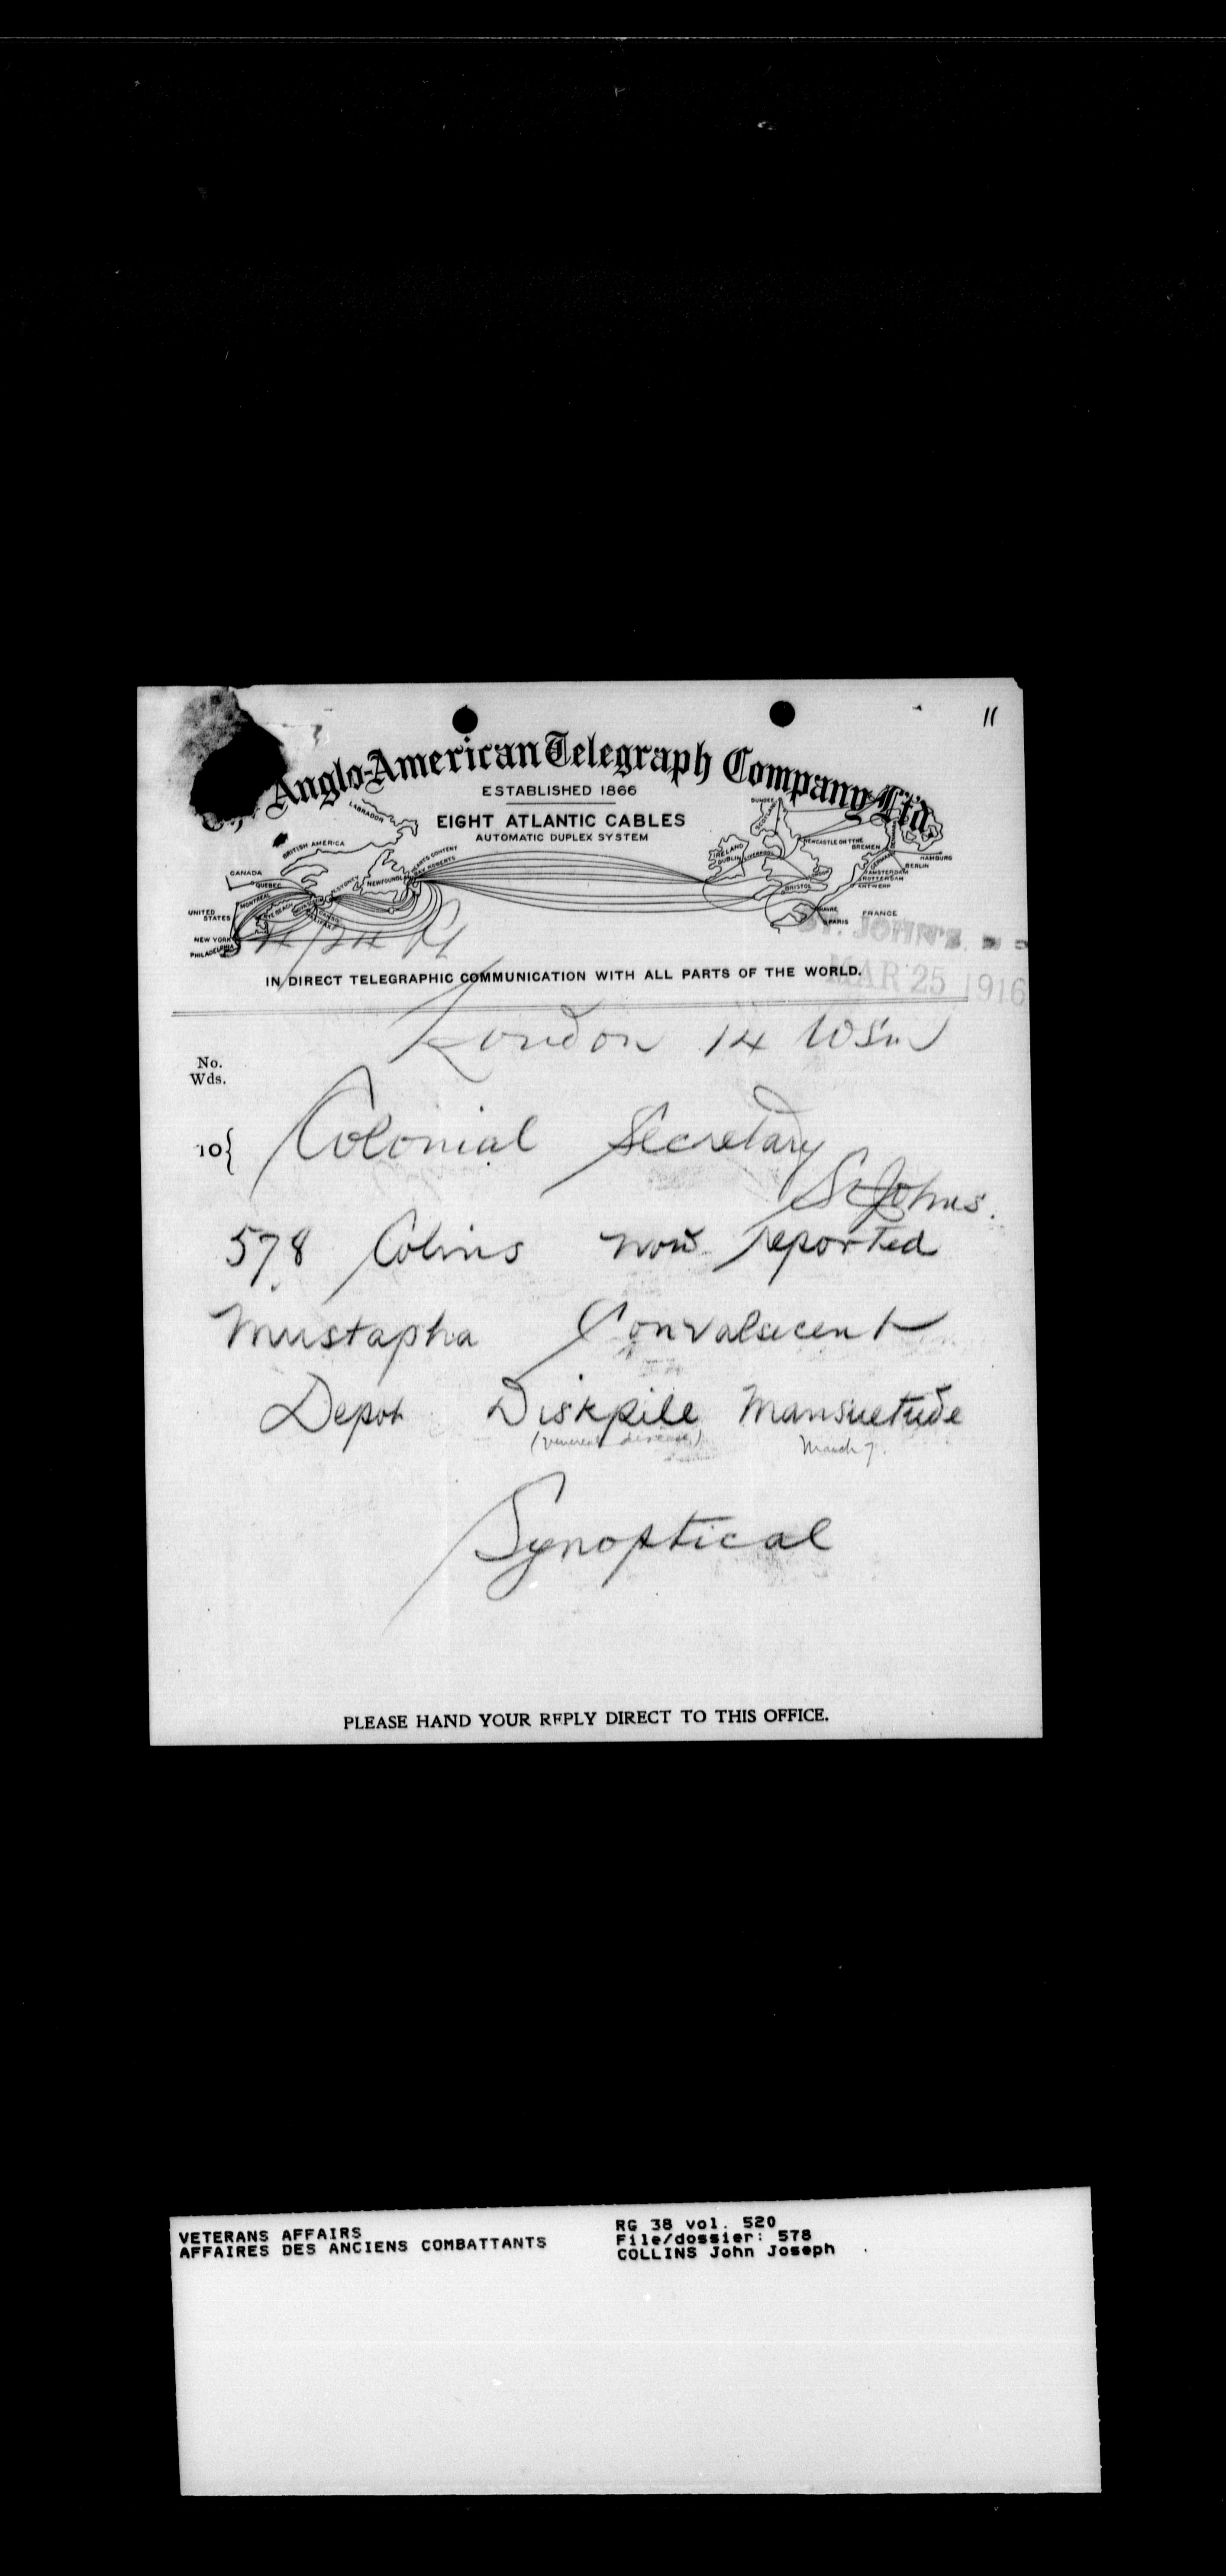 11
Anglo-American Telegraph Company Ltd.
ESTABLISHED 1866
EIGHT ATLANTIC CABLES
AUTOMATIC DUPLEX SYSTEM
LABRADOR
BRITISH AMERICA
CANADA
QUEBEC
MONTREAL
UNITED STATES
NEW YORK
PHILADELPHIA
SYDNEY
NEWFOUNDLAND
HEARTS CONTENT
BAY ROBERTS
DUNDEE
SCOTLAND
IRELAND
DUBLIN
LIVERPOOL
NEWCASTLE ON TYNE
BREMEN
HAMBURG
BERLIN
GERMANY
AMSTERDAM
ROTTERDAM
ANTWERP
BRISTOL
LONDON
HAVRE
PARIS
FRANCE
ST. JOHN'S
MAR 25 1916
IN DIRECT TELEGRAPHIC COMMUNICATION WITH ALL PARTS OF THE WORLD.
London 14
No.
Wds.
10{ Colonial Secretary
St Johns.
578 Colins now reported
Mustapha Convalescent
Depot Diskpile Mansuetude
(venereal disease) March 7.
Synoptical
PLEASE HAND YOUR REPLY DIRECT TO THIS OFFICE.
VETERANS AFFAIRS
AFFAIRES DES ANCIENS COMBATTANTS
RG 38 vol. 520
File/dossier: 578
COLLINS John Joseph